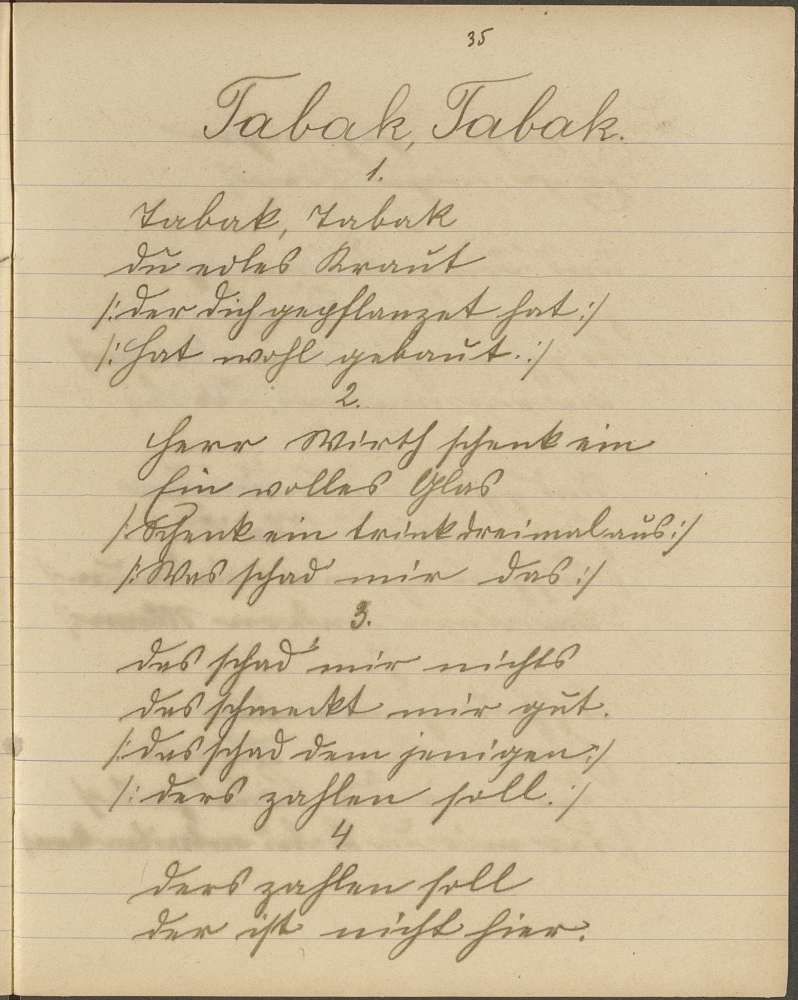 35
Tabak, Tabak.
1.
Tabak, Tabak
du edles Kraut
/: der dich gepflanzet hat :/
/: hat wohl gebaut. :/
2.
Herr Wirth schenk ein
Ein volles Glas
/: Schenk ein trink dreimal aus :/
/: Was schad mir das :/
3.
das schad mir nichts
das schmeckt mir gut.
/: das schad dem jenigen :/
/: ders zahlen soll. :/
4
ders zahlen soll
der ist nicht hier.